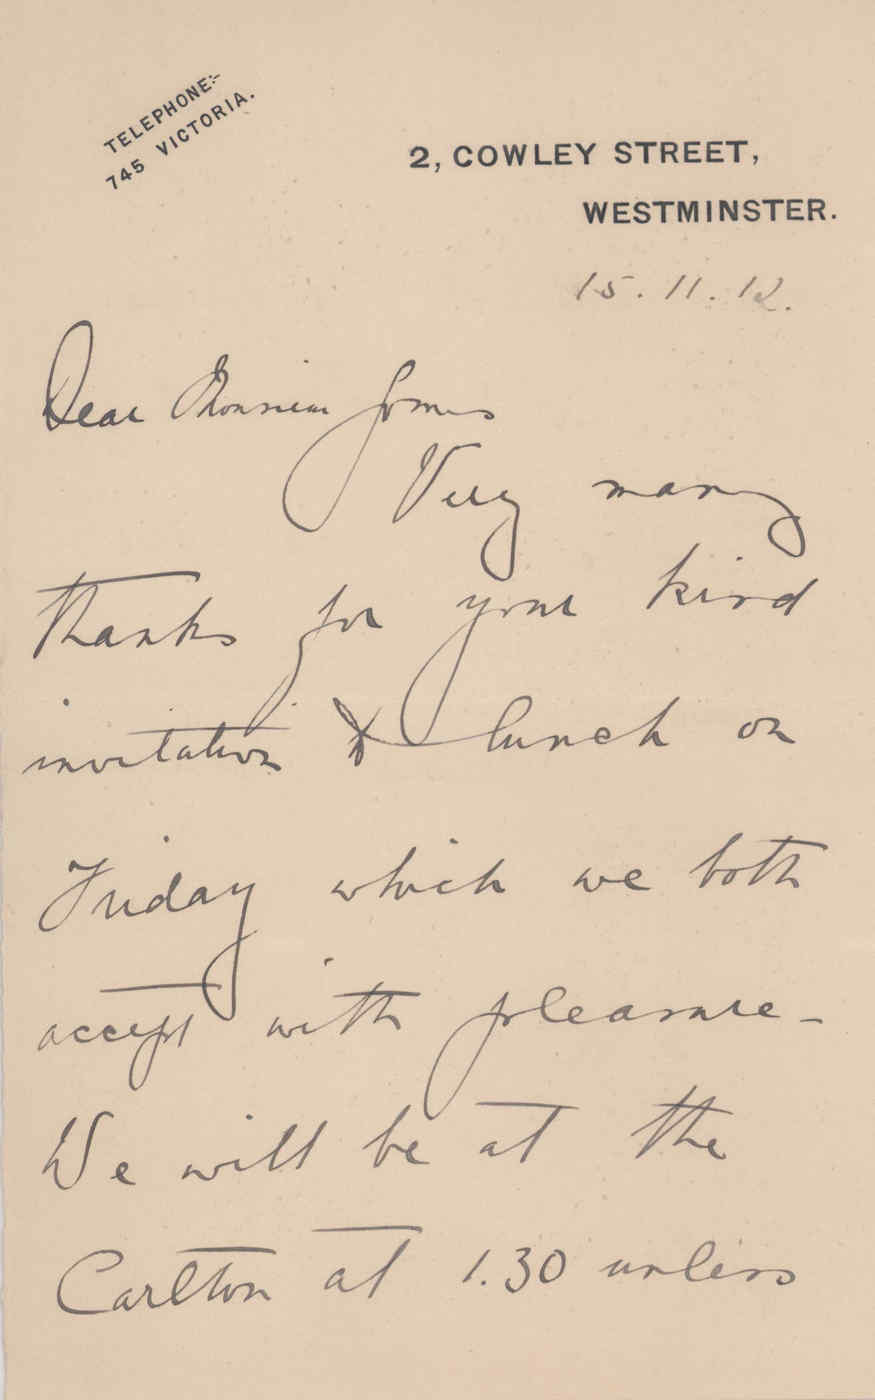 TELEPHONE:-
745 VICTORIA.
2, COWLEY STREET,
WESTMINSTER.
15.11.12.
Dear Monsieur
Very many
thanks for your kind
invitation to lunch on
Friday which we both
accept with pleasure -
We will be at the
Carlton at 1.30 unless